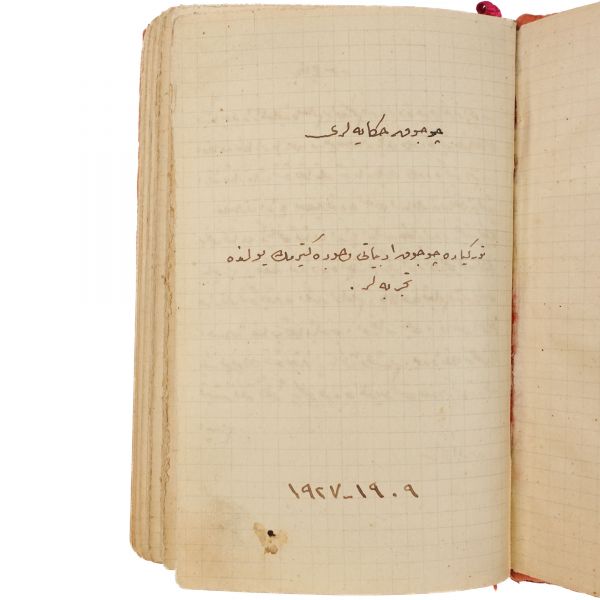 چوجوق حکایه لری
تورکیاده چوجوق ادبیاتی وجوده کتیرمك یولنده
تجربه لر .
١٩٠٩-١٩٢٧